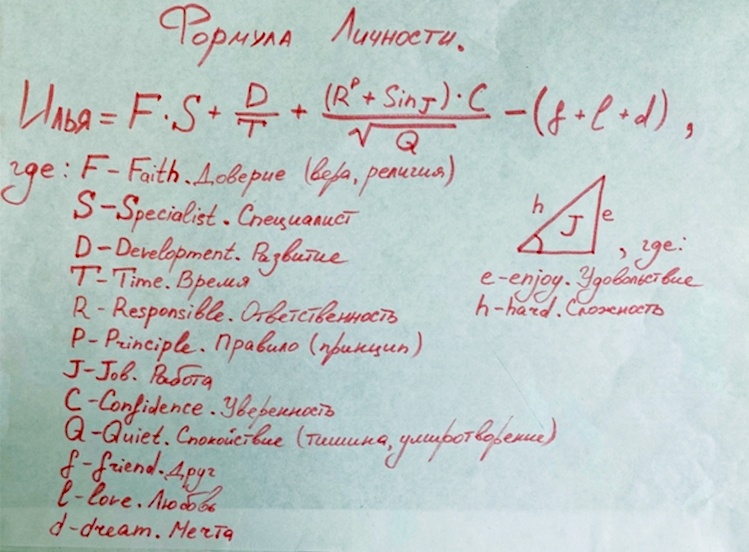 Формула Личности.
Илья = F·S + D/T + (R^P + Sin J)·C / √Q − (f + l + d),
где: F – Faith. Доверие (вера, религия)
S – Specialist. Специалист
D – Development. Развитие
T – Time. Время
R – Responsible. Ответственность
P – Principle. Правило (принцип)
J – Job. Работа
C – Confidence. Уверенность
Q – Quiet. Спокойствие (тишина, умиротворение)
f – friend. Друг
l – love. Любовь
d – dream. Мечта
h J e , где:
e – enjoy. Удовольствие
h – hard. Сложность